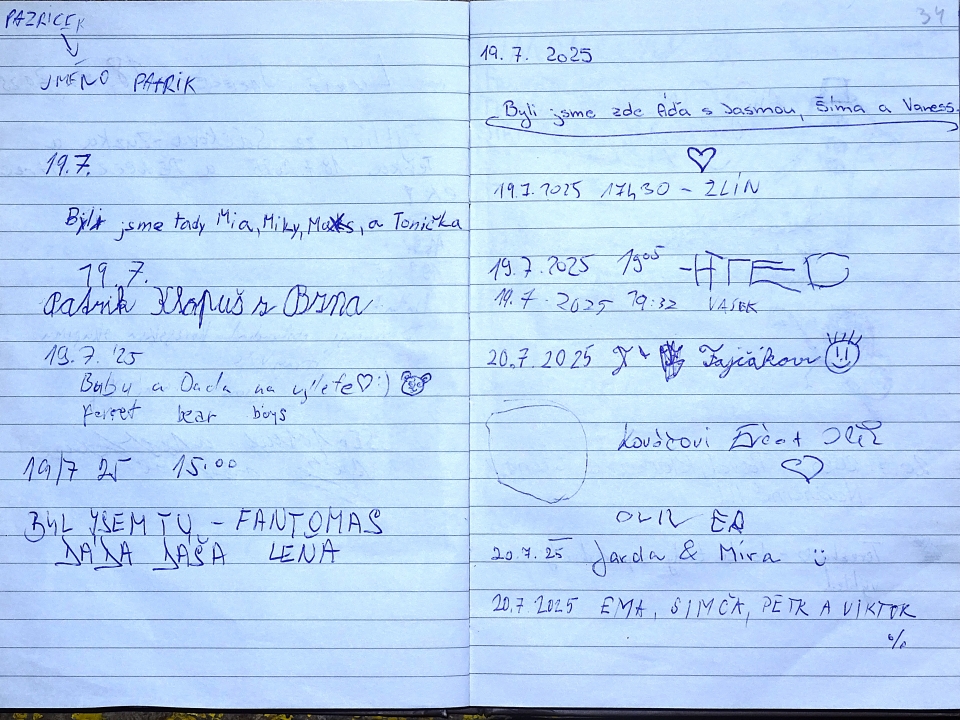 PAZRICEK
JMÉNO PATRIK
19.7.
Byli jsme tady Mia, Miky, a Tonička
19.7.
Patrik Klapuš z Brna
19.7.'25
Bubu a Dada na výletě♡:)
forest bear boys
19/7 25 15:00
BYL JSEM TU - FANTOMAS
DÁDA DAŠA LENA
34
19.7. 2025
Byli jsme zde Áďa s Jasmou, Šíma a Vaness.
19.7.2025 17h30 - ZLÍN
19.7.2025 1905
19.7.2025 19:32 VAŠEK
20.7.2025 Fajčákovi
Kováčovi
20.7.25 Jarda & Míra
20.7.2025 EMA, SIMČA, PETR A VIKTOR
%